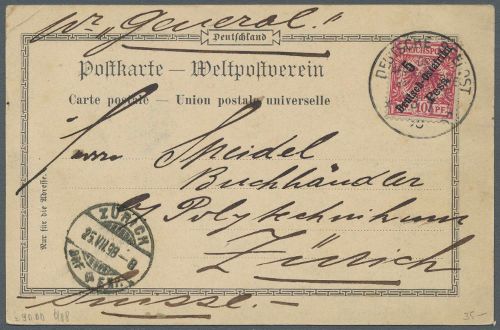 pr "General"
Deutschland
Postkarte — Weltpostverein
Carte postale — Union postale universelle
REICHSPOST
5
Pesa
10 PF
DEUTSCHE
POST
Herrn Speidel
Buchhändler
Polytechnikum
Zürich
Suisse.
Nur für die Adresse.
ZÜRICH
25.VII.98–8
BRF. EXP.
35–